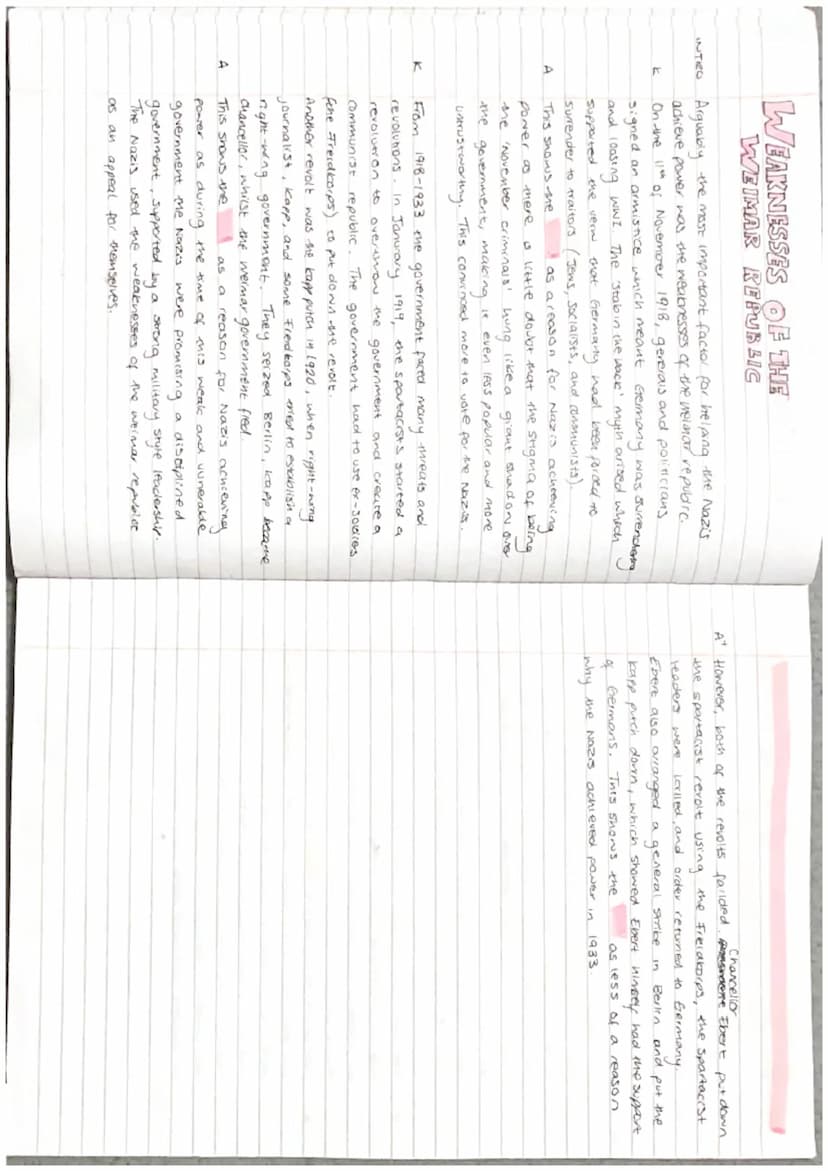 WEAKNESSES OF THE
WEIMAR REPUBLIC
INTRO Arguably the most important factor for helping the Nazis
achieve power was the weaknesses of the weimar republic.
K On the 11th of November 1918, generals and politicians
signed an armistice which meant Germany was surrendering
and loosing WW1. The 'stab in the back' myth arised which
supported the view that Germany had been forced to
surrender to traitors (Jews, socialists, and communists).
A This shows the as a reason for Nazis achieving
power as there is little doubt that the stigma of being
the 'November criminals' hung like a giant shadow over
the government, making it even less popular and more
untrustworthy. This convinced more to vote for the Nazis.
K From 1918-1933 the government faced many threats and
revolutions. In January 1919, the spartacists started a
revolution to overthrow the government and create a
communist republic. The government had to use ex-soldiers
(the Freidkorps) to put down the revolt.
Another revolt was the kapp putch in 1920, when right-wing
journalist, Kapp, and some Freidkorps tried to establish a
right-wing government. They seized Berlin, Kapp became
chancellor, whilst the weimar government fled.
A This shows the as a reason for Nazis achieving
power as during the time of this weak and vulnerable
government the Nazis were promising a disciplined
government, supported by a strong military style leadership.
The Nazis used the weaknesses of the weimar republic
as an appeal for themselves.
Chancellor
A+ However, both of the revolts failded. Ebert put down
the spartacist revolt using the Freidkorps, the spartacist
leaders were killed, and order returned to Germany.
Ebert also arranged a general strike in Berlin and put the
kapp putch down, which showed Ebert himself had the support
of Germans. This shows the as less of a reason
why the Nazis achieved power in 1933.